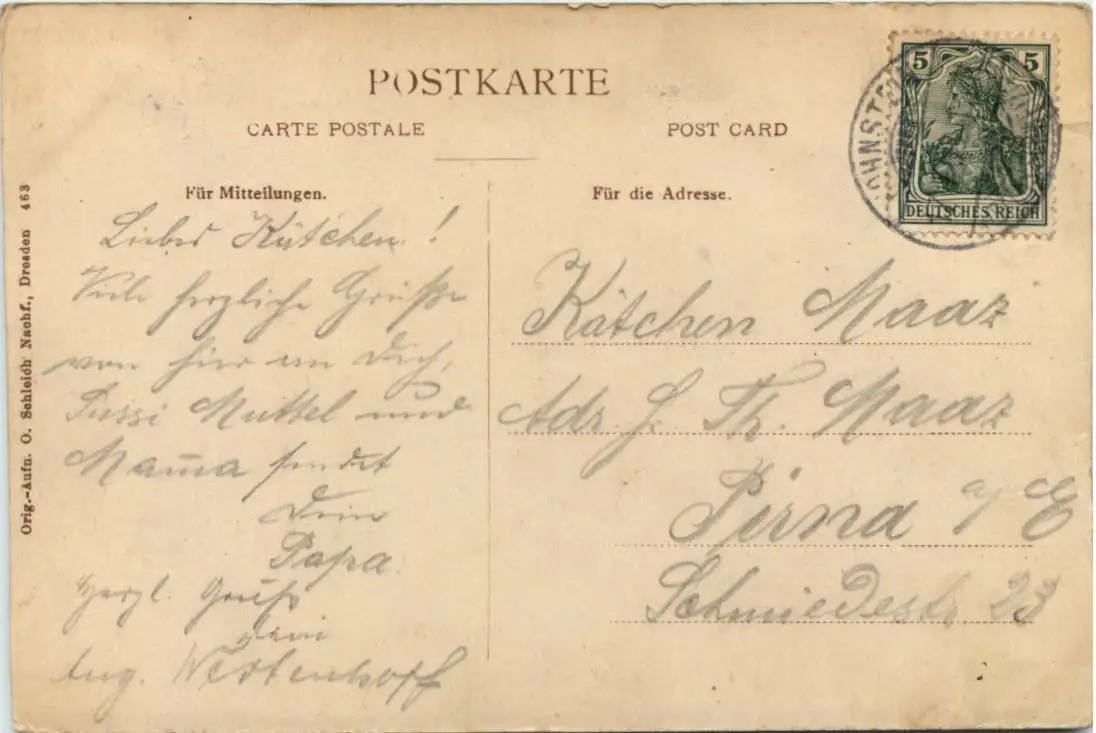 POSTKARTE
CARTE POSTALE
POST CARD
Für Mitteilungen.
Liebes Kätchen!
Viele herzliche Grüße
von hier an Dich,
Muttel und
Mama sendet
Dein
Papa.
Herzl. Gruß
Aug. Westenhoff
Für die Adresse.
Kätchen Maaz
Adr. Th. Maaz
Pirna a/E
Schmiedestr. 23
5 5
DEUTSCHES REICH
Orig.-Aufn. O. Schleich Nachf., Dresden 463